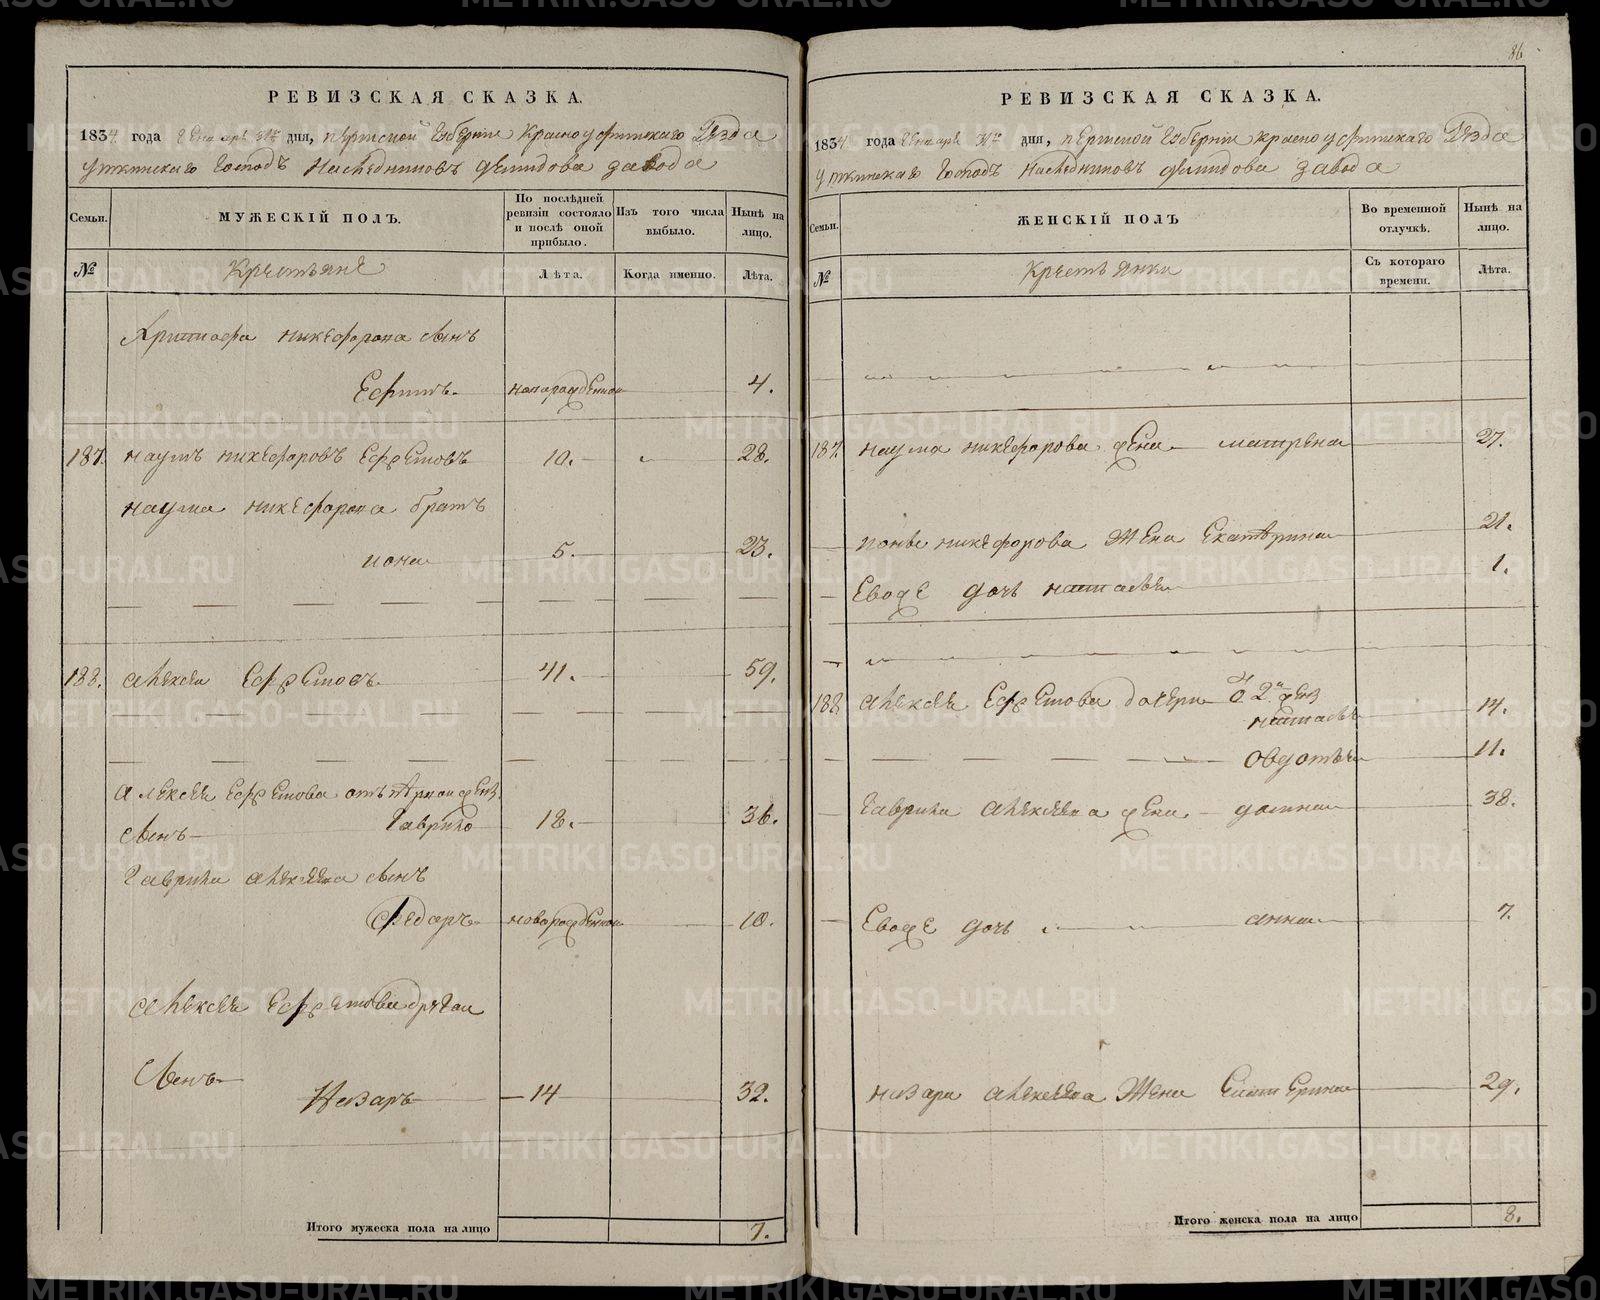 РЕВИЗСКАЯ СКАЗКА.
1834 года Генваря 31го дня, пермской Губернии Красноуфимскаго Уезда
Уткинскаго Господъ Наследниковъ Демидова завода
Семьи.
МУЖЕСКІЙ ПОЛЪ.
По послѣдней ревизіи состояло и послѣ оной прибыло.
Изъ того числа выбыло.
Нынѣ на лицо.
№
Крестьяне
Лѣта.
Когда именно.
Лѣта.
никефорова сынъ
Ефимъ новорожденной 4.
187. наумъ никефоровъ Ефремовъ 10. 28.
наума никефорова братъ
иона 5. 23.
188. алексеи Ефремовъ 41. 59.
алексея Ефремова отъ первой жены
сынъ Гаврило 18. 36.
Гаврила алексеева сынъ
Федоръ новорожденной 10.
алексея Ефремова другои
сынъ
Назаръ 14 32.
Итого мужеска пола на лицо 7.
86
РЕВИЗСКАЯ СКАЗКА.
1834 года Генваря 31го дня, пермской Губернии красноуфимскаго Уезда
Уткинскаго Господъ Наследниковъ демидова завода
Семьи.
ЖЕНСКІЙ ПОЛЪ
Во временной отлучкѣ.
Нынѣ на лицо.
№
Крестьянки
Съ котораго времени.
Лѣта.
187. наума никефорова жена матрена 27.
ионы никефорова жена Екатерина 21.
Евоже дочь настасья 1.
188. алексея Ефремова дочери о 2й жены
настасья 14.
овдотья 11.
Гаврила алексеева жена домна 38.
Евоже дочь анна 7.
назара алексеева жена Екатерина 29.
Итого женска пола на лицо 8.
METRIKI.GASO-URAL.RU